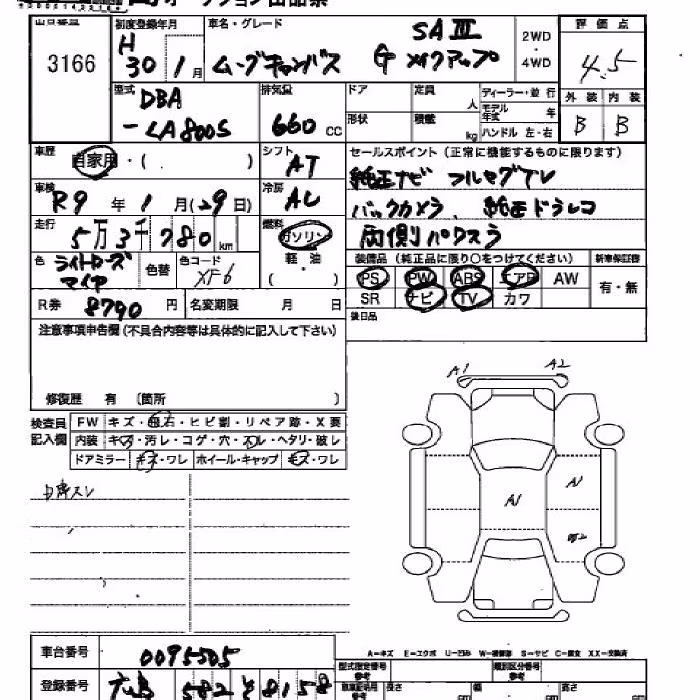 オークション出品票
3166
初度登録年月 H30年1月
車名・グレード ムーブキャンバス G メイクアップ SA III
2WD・4WD
評価点 4.5
外装 B 内装 B
型式 DBA-LA800S
排気量 660 cc
ドア 定員 人
形状 積載 kg
ディーラー・並行
モデル年式 年
ハンドル 左・右
車歴 自家用・( )
シフト AT
セールスポイント (正常に機能するものに限ります)
純正ナビ フルセグTV
バックカメラ、純正ドラレコ
両側パワスラ
車検 R9年1月(29日)
冷房 AC
走行 5万3千780km
燃料 ガソリン・軽油 ( )
色 ライトローズマイカ
色替
色コード XF6
装備品 (純正品に限り○をつけてください)
新車保証書 有・無
PS PW ABS エアB AW
SR ナビ TV カワ
R券 8790円
名変期限 月 日
後日品
注意事項申告欄 (不具合内容等は具体的に記入して下さい)
修復歴 有 〔箇所 〕
検査員記入欄
FW キズ・飛石・ヒビ割・リペア跡・X要
内装 キズ・汚レ・コゲ・穴・スレ・ヘタリ・破レ
ドアミラー キズ・ワレ ホイール・キャップ キズ・ワレ
A1 A2
A1 A1
A=キズ E=エクボ U=凹み W=補修跡 S=サビ C=腐食 XX=交換済
車台番号 0095505
型式指定番号 参考
類別区分番号 参考
登録番号 広島 582 そ 8158
車庫証明用 参考 長さ cm 幅 cm 高さ cm